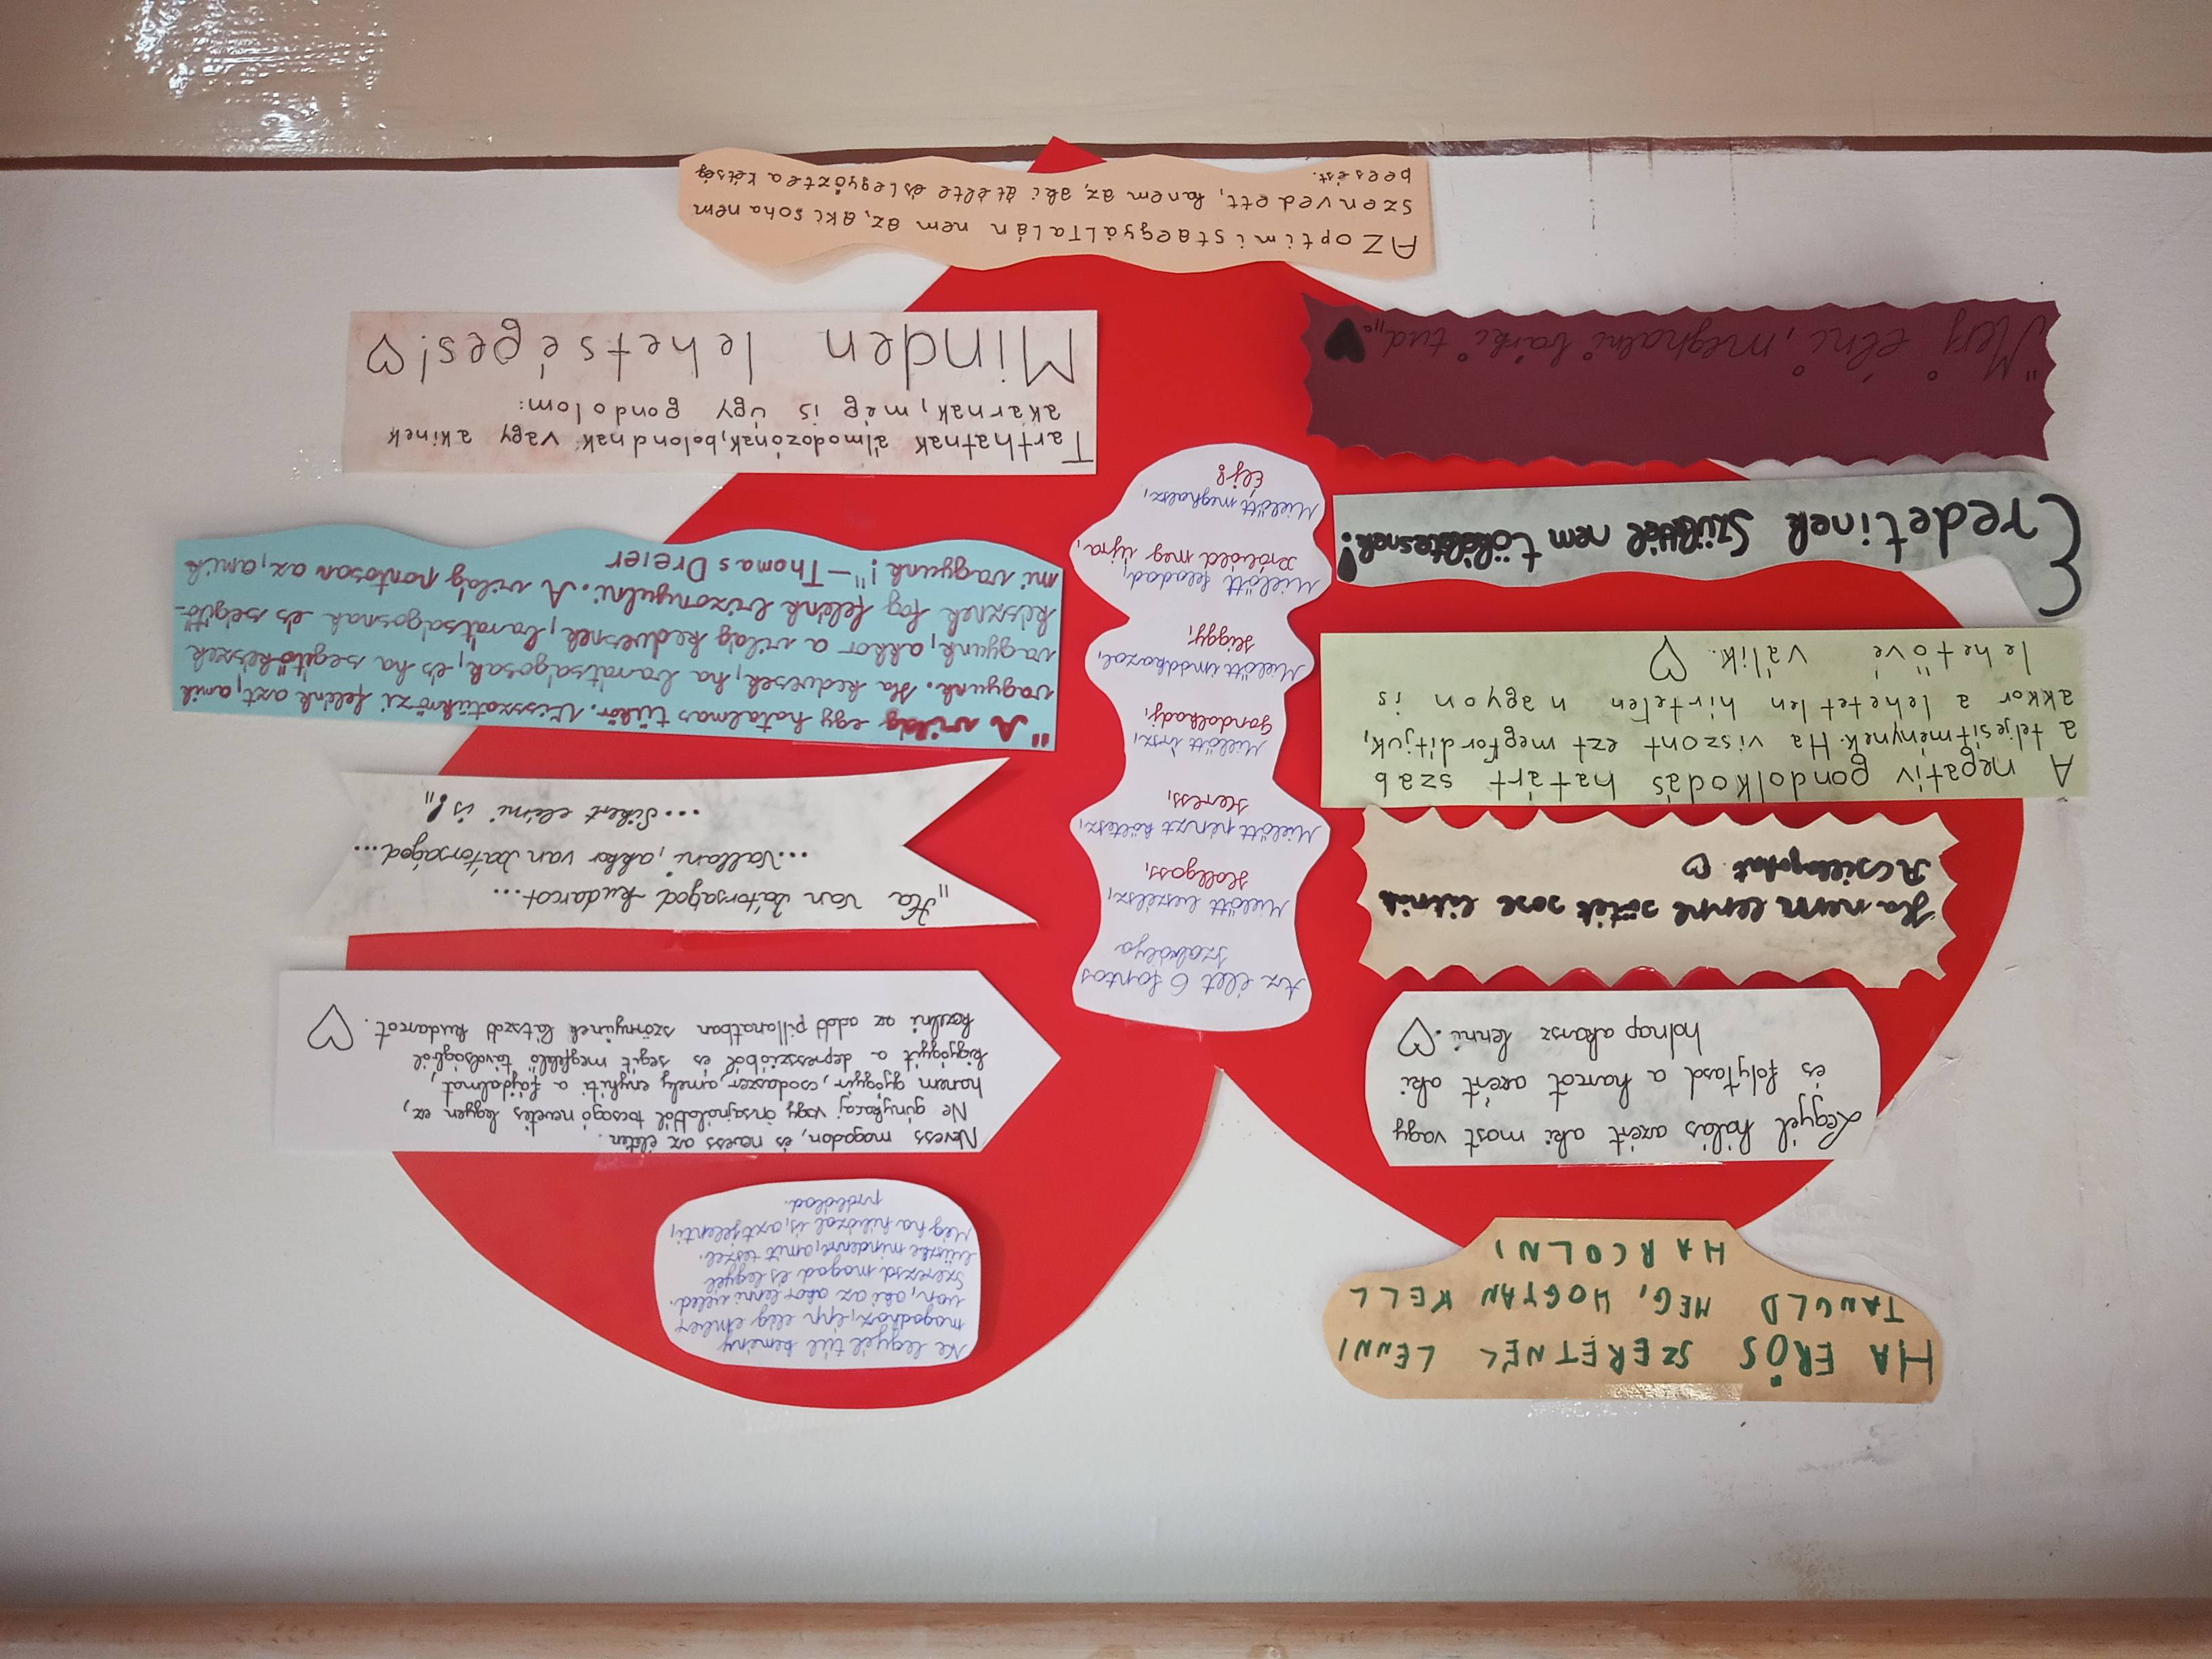 HA ERŐS SZERETNÉL LENNI
TANULD MEG, HOGYAN KELL
HARCOLNI
Legyél hálás azért aki most vagy
és folytasd a harcot azért aki
holnap akarsz lenni.
Ha nem lenne sötét sose látnánk
A csillagokat
A negatív gondolkodás határt szab
a teljesítménynek. Ha viszont ezt megfordítjuk,
akkor a lehetetlen hirtelen nagyon is
lehetővé válik.
Eredetinek Születtél nem tökéletesnek!
"Merj élni, meghalni bárki tud."
Az élet 6 fontos
szabálya
Mielőtt beszélsz,
Hallgass,
Mielőtt pénzt költesz,
Keress,
Mielőtt írsz,
Gondolkodj,
Mielőtt imádkozol,
Higgy,
Mielőtt feladod,
Próbáld meg újra,
Mielőtt meghalsz,
Élj!
Ne legyél túl kemény
magadhoz, épp elég ember
van, aki az akar lenni veled.
Szerezd magad és legyél
büszke mindenre, amit teszel.
Még ha hibázol is, azt jelenti,
próbálod.
Nevess magadon, és nevess az életen.
Ne gúnykacaj vagy önsajnálatból tocsogó nevetés legyen ez,
hanem gyógyír, csodaszer, amely enyhíti a fájdalmat,
kigyógyít a depresszióból és segít megfelelő távolságból
kezelni az adott pillanatban szörnyűnek látszó kudarcot.
"Ha van bátorságod kudarcot...
...Vallani, akkor van bátorságod...
...Sikert elérni is!"
"A világ egy hatalmas tükör. Visszatükrözi felénk azt, amik
vagyunk. Ha kedvesek, ha barátságosak, és ha segítőkészek
vagyunk, akkor a világ kedvesnek, barátságosnak és segítő-
késznek fog felénk bizonyulni. A világ pontosan az, amik
mi vagyunk!" – Thomas Dreier
Tarthatnak álmodozónak, bolondnak vagy akinek
akarnak, még is úgy gondolom:
Minden lehetséges!
AZ optimista egyáltalán nem az, aki soha nem
szenvedett, hanem az, aki át élte és legyőzte a kétség
beesést.